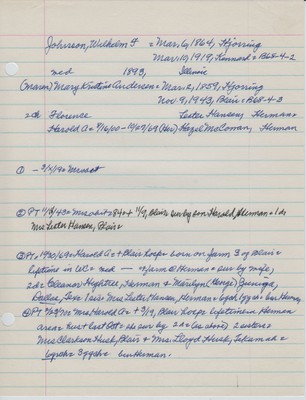 Johnson, Wilhelm F = Mar, 6, 1864, Hjorring
Mar, 10, 1919, Kennard = B68-4-2
med 1893, Illinois
(Maren) Mary Kristine Andersen = Mar, 2, 1859, Hjorring
Nov. 9, 1943, Blair = B68-4-3
2 ch Florence Lester Hansen, Herman =
Harold A = 9/16/00 - 10/29/69 (Her) Hazel McComan, Herman
① - 3/4/19 =
② PT 11/18/43 = Mrs 84 + 11/9, Blair = sur by son Harold, Herman = 1 da
Mrs Lester Hansen, Blair =
③ PT = 1930/69 = Harold A = + Blair Hosp = born on farm 3 Blair =
lifetime in WC = med — farm at Herman = sur by wife,
2 da = Eleanor Hightree, Herman & Marilyn (George) Zuniga,
Dallas, Tex 1 sis = Mrs Lester Hansen, Herman = bur Herm,
④ PT Mrs Harold A = + 3/9, Blair Hosp = lifetime in Herman
area = Hus + last Oct = sur by 2 da (as above) 2 sisters =
Mrs Clarkson Husk, Blair & Mrs Lloyd Husk, Tekamah =
6 grch = 3 ggch = bur Herman,